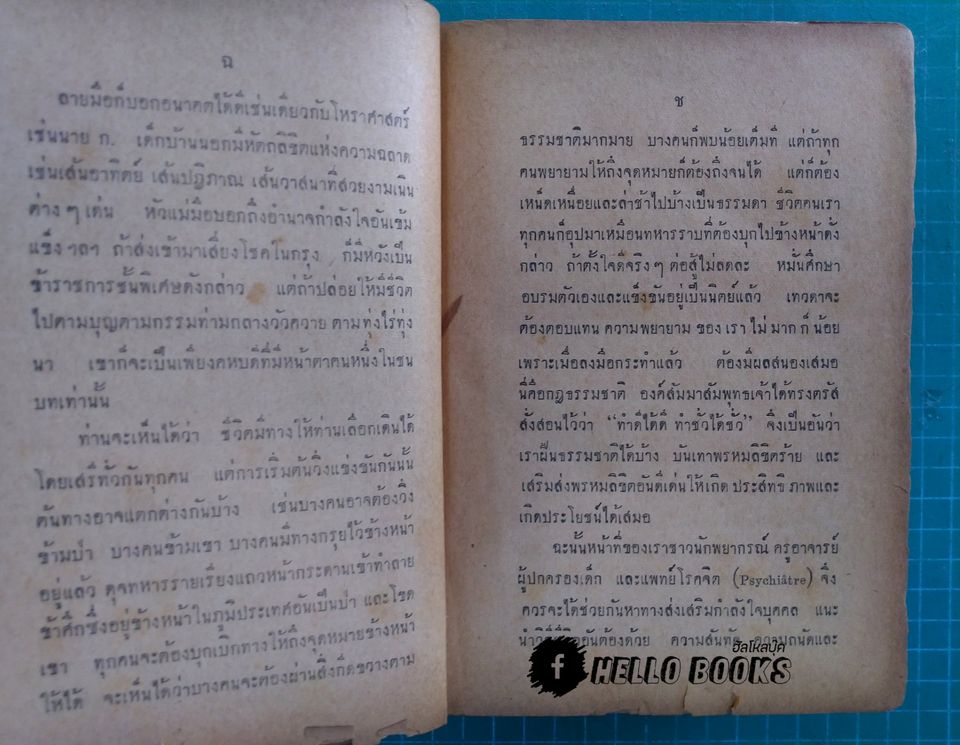 ฉ
ลายมือก็บอกอนาคตได้ดีเช่นเดียวกับโหราศาสตร์
เช่นนาย ก. เด็กบ้านนอกมีหัตถลิขิตแห่งความฉลาด
เช่นเส้นอาทิตย์ เส้นปฏิภาณ เส้นวาสนาที่สวยงามเนิน
ต่าง ๆ เด่น หัวแม่มือบอกถึงอำนาจกำลังใจอันเข้ม
แข็ง ฯลฯ ถ้าส่งเข้ามาเสี่ยงโชคในกรุง ก็มีหวังเป็น
ข้าราชการชั้นพิเศษดังกล่าว แต่ถ้าปล่อยให้มีชีวิต
ไปตามบุญตามกรรมท่ามกลางวัวควาย ตามทุ่งไร่ทุ่ง
นา เขาก็จะเป็นเพียงคหบดีที่มีหน้าตาคนหนึ่งในชน
บทเท่านั้น
ท่านจะเห็นได้ว่า ชีวิตมีทางให้ท่านเลือกเดินได้
โดยเสรีทั่วกันทุกคน แต่การเริ่มต้นวิ่งแข่งขันกันนั้น
ต้นทางอาจแตกต่างกันบ้าง เช่นบางคนอาจต้องวิ่ง
ข้ามป่า บางคนข้ามเขา บางคนมีทางกรุยไว้ข้างหน้า
อยู่แล้ว ดุจทหารรายเรียงแถวหน้ากระดานเข้าทำลาย
ข้าศึกซึ่งอยู่ข้างหน้าในภูมิประเทศอันเป็นป่า และโขด
เขา ทุกคนจะต้องบุกเบิกทางให้ถึงจุดหมายข้างหน้า
ให้ได้ จะเห็นได้ว่าบางคนจะต้องผ่านสิ่งกีดขวางตาม
ช
ธรรมชาติมากมาย บางคนก็พบน้อยเต็มที แต่ถ้าทุก
คนพยายามให้ถึงจุดหมายก็ต้องถึงจนได้ แต่ก็ต้อง
เหน็ดเหนื่อยและล่าช้าไปบ้างเป็นธรรมดา ชีวิตคนเรา
ทุกคนก็อุปมาเหมือนทหารราบที่ต้องบุกไปข้างหน้าดัง
กล่าว ถ้าตั้งใจดีจริง ๆ ต่อสู้ไม่ลดละ หมั่นศึกษา
อบรมตัวเองและแข็งขันอยู่เป็นนิตย์แล้ว เทวดาจะ
ต้องตอบแทน ความพยายาม ของ เรา ไม่ มาก ก็ น้อย
เพราะเมื่อลงมือกระทำแล้ว ต้องมีผลสนองเสมอ
นี่คือกฎธรรมชาติ องค์สัมมาสัมพุทธเจ้าได้ทรงตรัส
สั่งสอนไว้ว่า “ทำดีได้ดี ทำชั่วได้ชั่ว” จึงเป็นอันว่า
เราฝืนธรรมชาติได้บ้าง บันเทาพรหมลิขิตร้าย และ
เสริมส่งพรหมลิขิตอันดีเด่นให้เกิด ประสิทธิ ภาพและ
เกิดประโยชน์ได้เสมอ
ฉะนั้นหน้าที่ของเราชาวนักพยากรณ์ ครูอาจารย์
ผู้ปกครองเด็ก และแพทย์โรคจิต (Psychiâtre) จึง
ควรจะได้ช่วยกันหาทางส่งเสริมกำลังใจบุคคล แนะ
นำวิถีชีวิตอันต้องด้วย ความสันทัด ความถนัดและ
ฮัลโหลบุ๊ค
f HELLO BOOKS